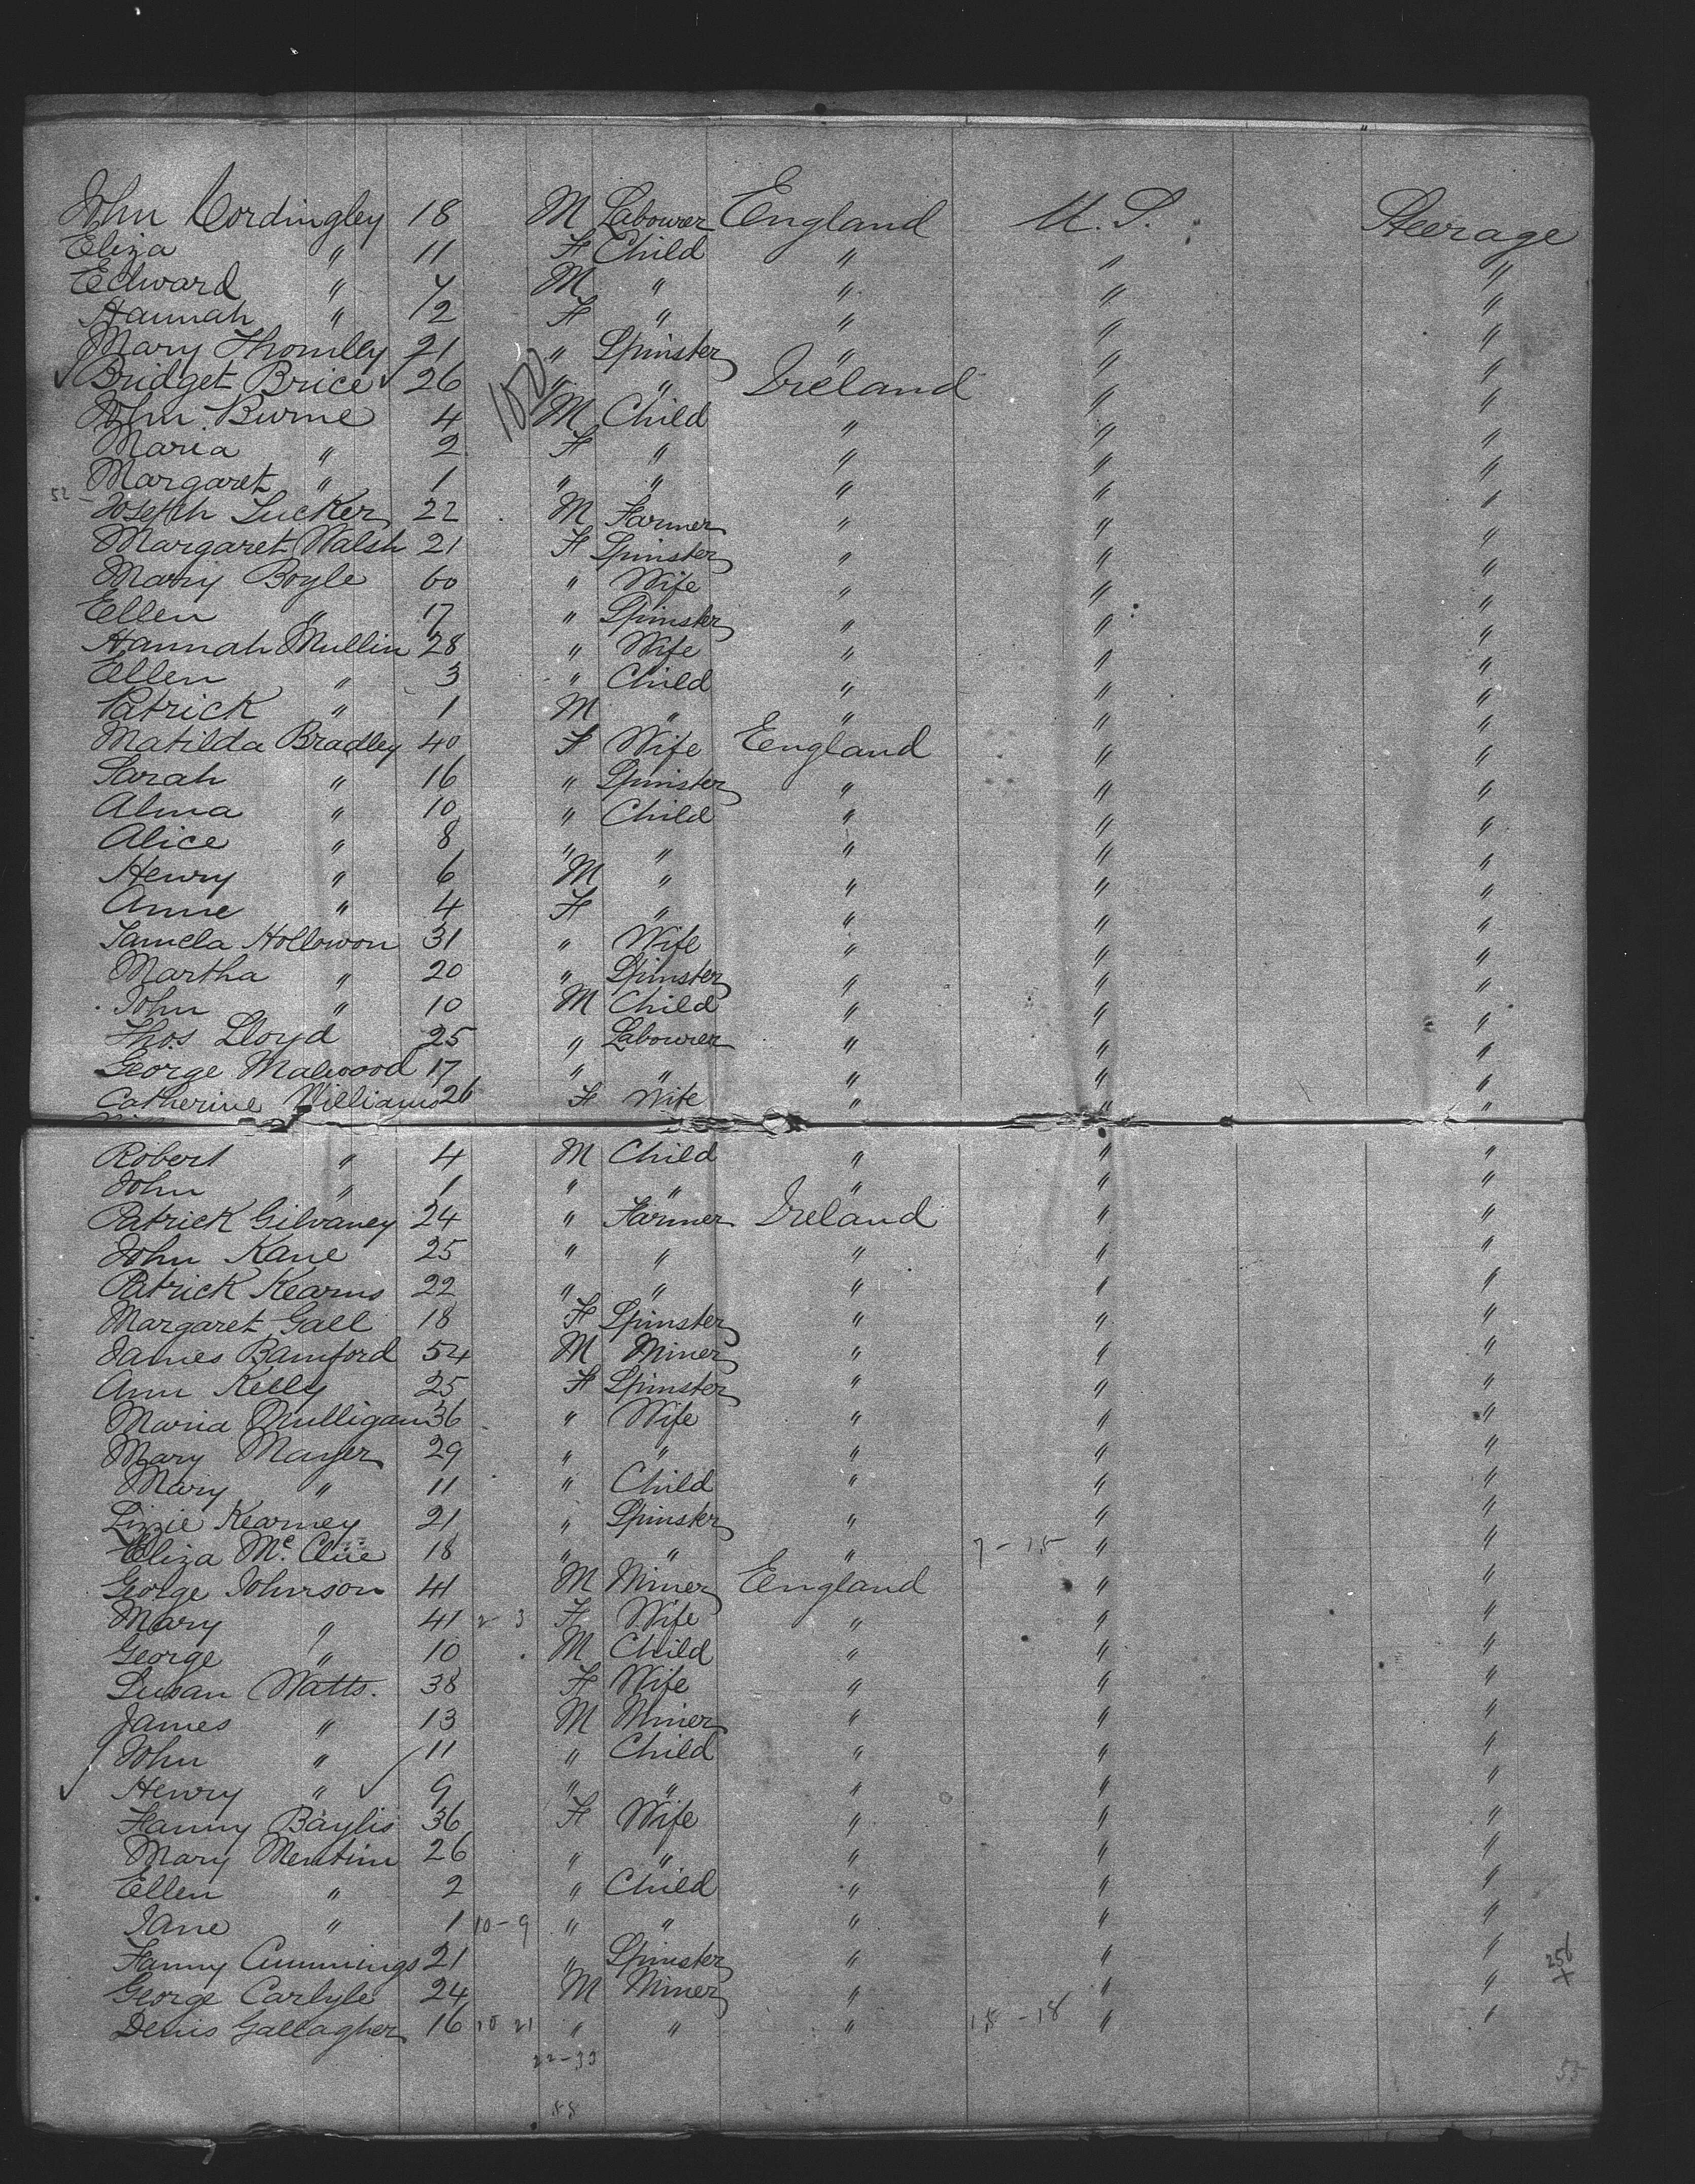 John Cordingley 18 M Labourer England U.S. Steerage
Eliza " 11 F Child " " "
Edward " 7 M " " " "
Hannah " 2 F " " " "
Mary Thornley 21 " Spinster " " "
Bridget Brice 26 " " Ireland " "
John Burne 4 M Child " " "
Maria " 2 F " " " "
Margaret " 1 " " " " "
52 - Joseph Tucker 22 M Farmer " " "
Margaret Walsh 21 F Spinster " " "
Mary Boyle 60 " Wife " " "
Ellen " 17 " Spinster " " "
Hannah Mullin 28 " Wife " " "
Ellen " 3 " Child " " "
Patrick " 1 M " " " "
Matilda Bradley 40 F Wife England " "
Sarah " 16 " Spinster " " "
Alma " 10 " Child " " "
Alice " 8 " " " " "
Henry " 6 M " " " "
Anne " 4 F " " " "
Hollowon 31 " Wife " " "
Martha " 20 " Spinster " " "
John " 10 M Child " " "
Thos Lloyd 25 " Labourer " " "
George Malwood 17 " " " " "
Catherine Williams 26 F Wife " " "
Robert " 4 M Child " " "
John " 1 " " " " "
Patrick Gilvaney 24 " Farmer Ireland " "
John Kane 25 " " " " "
Patrick Kearns 22 " " " " "
Margaret Gall 18 F Spinster " " "
James Bamford 54 M Miner " " "
Ann Kelly 25 F Spinster " " "
Maria Mulligan 36 " Wife " " "
Mary Mayer 29 " " " " "
Mary " 11 " Child " " "
Lizzie Kearney 21 " Spinster " " "
Eliza Mc. Clue 18 " " " 7-15 " "
George Johnson 41 M Miner England " "
Mary " 41 2 3 F Wife " " "
George " 10 M Child " " "
Susan Watts. 38 F Wife " " "
James " 13 M Miner " " "
John " 11 " Child " " "
Henry " 9 " " " " "
Fanny Baylis 36 F Wife " " "
Mary Mentim 26 " " " " "
Ellen " 2 " Child " " "
Jane " 1 10-9 " " " " "
Fanny Cummings 21 " Spinster " " " 256
George Carlyle 24 M Miner " " " +
Denis Gallagher 16 10 21 " " " 18-18 " "
22-33
53
88